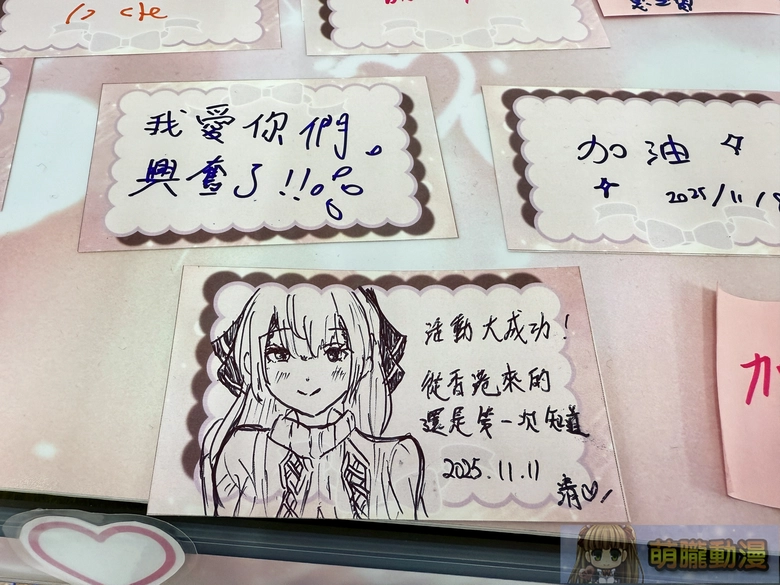 我愛你們。
興奮了!!
加油
2025/11/9
活動大成功！
從香港來的
還是第一次知道
2025.11.11
萌朧動漫